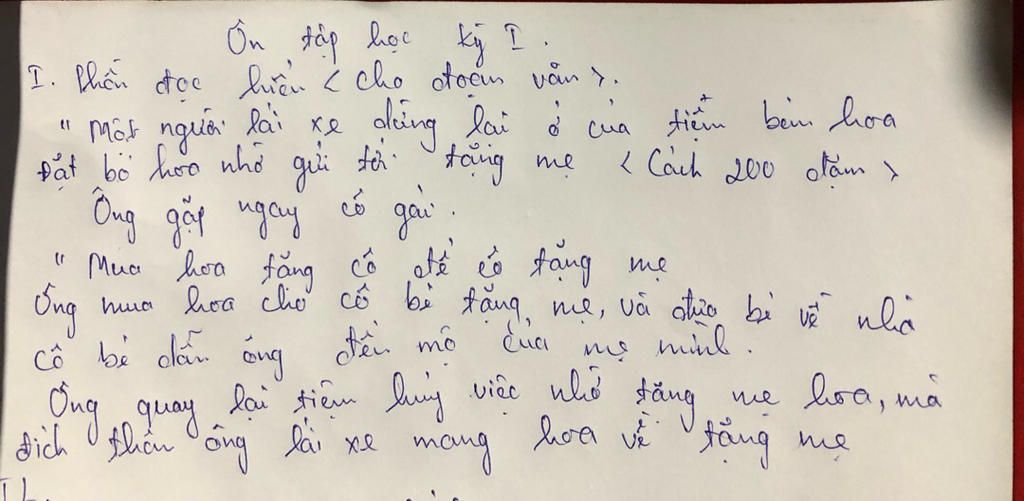 Ôn tập học kỳ I.
I. Phần đọc hiểu < cho đoạn văn >.
" Một người lái xe dừng lại ở của tiệm bán hoa
Đặt bó hoa nhờ gửi tới tặng mẹ < Cách 200 dặm >
Ông gặp ngay cô gái.
" Mua hoa tặng cô để cô tặng mẹ
Ông mua hoa cho cô bé tặng mẹ, và đưa bé về nhà
cô bé dẫn ông đến mộ của mẹ mình.
Ông quay lại tiệm hủy việc nhờ tặng mẹ hoa, mà
đích thân ông lái xe mang hoa về tặng mẹ